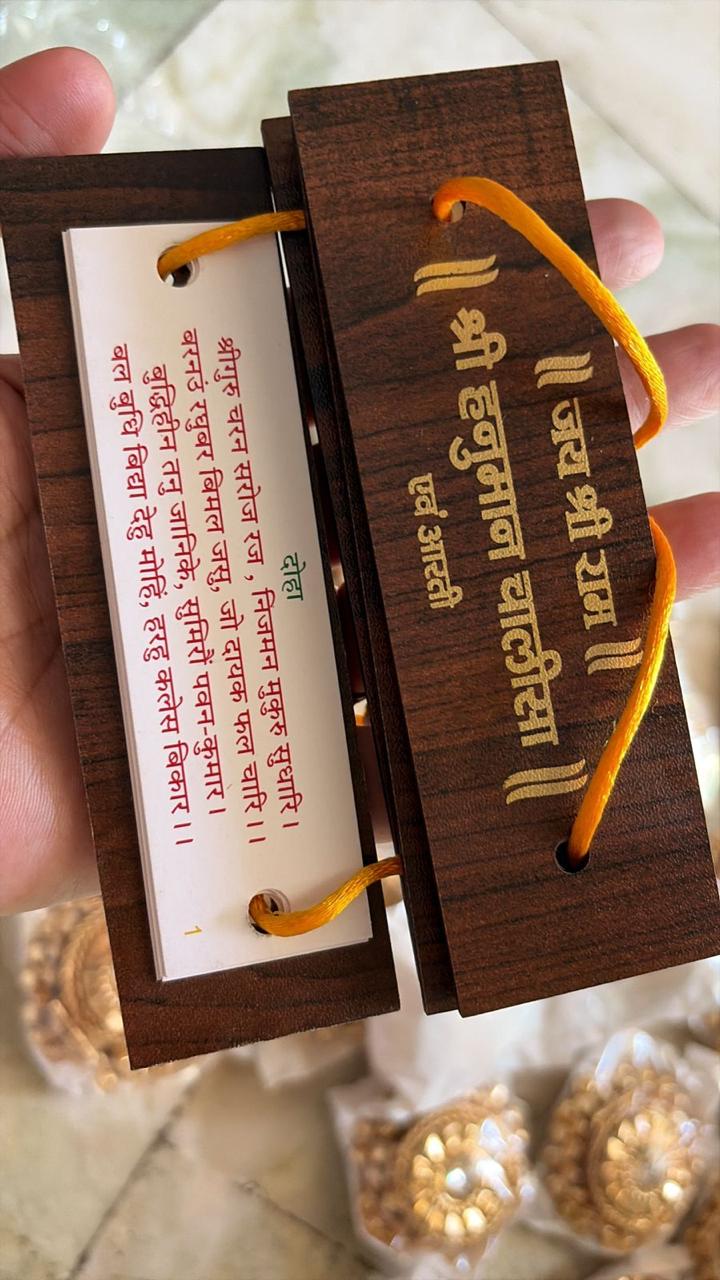 ॥ जय श्री राम ॥
॥ श्री हनुमान चालीसा ॥
एवं आरती
दोहा
श्रीगुरु चरन सरोज रज, निजमन मुकुरु सुधारि।
बरनउं रघुबर बिमल जसु, जो दायक फल चारि।।
बुद्धिहीन तनु जानिके, सुमिरौं पवन-कुमार।
बल बुधि विद्या देहु मोहिं, हरहु कलेस बिकार।।
1